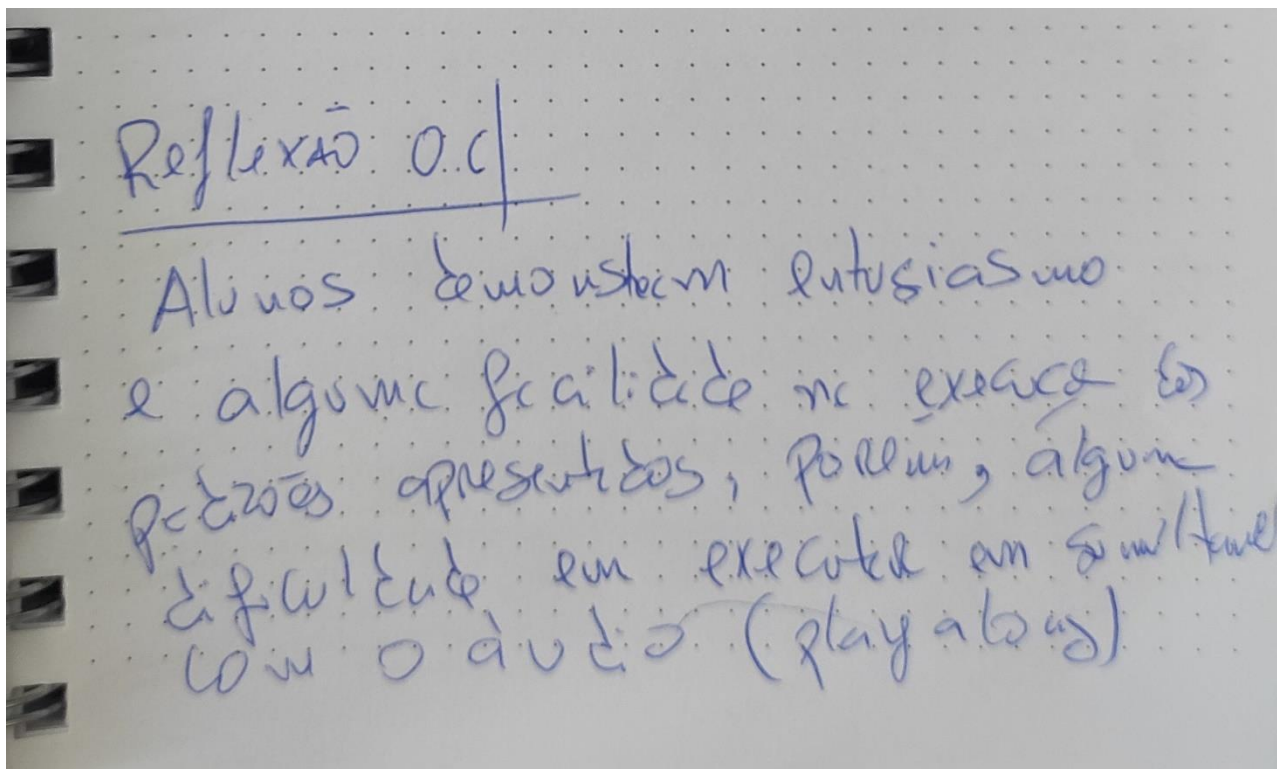 Reflexão O.C
Alunos demonstram entusiasmo
e alguma facilidade na execução dos
padrões apresentados, porém, alguma
dificuldade em executar em simultâneo
com o áudio (play along)